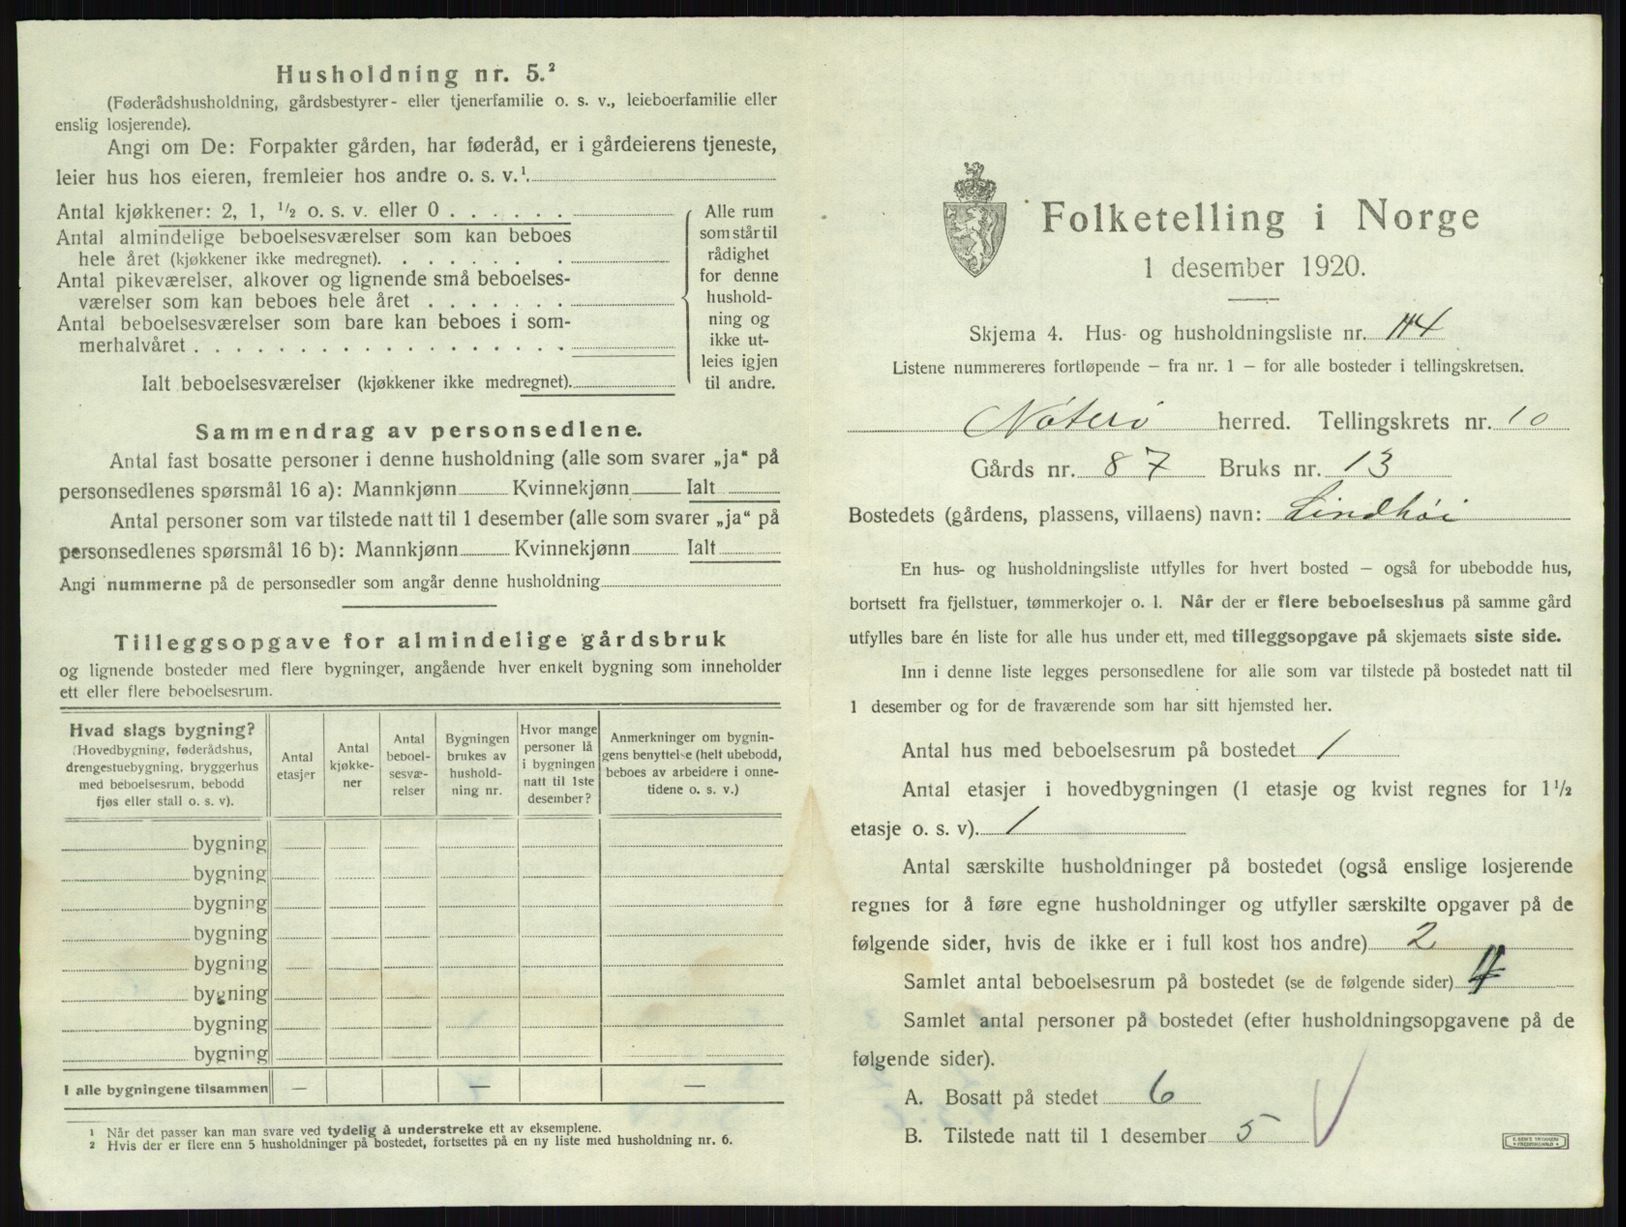 Husholdning nr. 5.²
(Føderådshusholdning, gårdsbestyrer- eller tjenerfamilie o. s. v., leieboerfamilie eller
enslig losjerende).
Angi om De: Forpakter gården, har føderåd, er i gårdeierens tjeneste,
leier hus hos eieren, fremleier hos andre o. s. v.¹.
Antal kjøkkener: 2, 1, ½ o. s. v. eller 0 . . . . . .
Antal almindelige beboelsesværelser som kan beboes
hele året (kjøkkener ikke medregnet). . . . . . . .
Antal pikeværelser, alkover og lignende små beboelses-
værelser som kan beboes hele året . . . . . . .
Antal beboelsesværelser som bare kan beboes i som-
merhalvåret . . . . . . . . . . . . . . . . . .
Ialt beboelsesværelser (kjøkkener ikke medregnet).
Alle rum
som står til
rådighet
for denne
hushold-
ning og
ikke ut-
leies igjen
til andre.
Sammendrag av personsedlene.
Antal fast bosatte personer i denne husholdning (alle som svarer „ja“ på
personsedlenes spørsmål 16 a): Mannkjønn Kvinnekjønn Ialt
Antal personer som var tilstede natt til 1 desember (alle som svarer „ja“ på
personsedlenes spørsmål 16 b): Mannkjønn Kvinnekjønn Ialt
Angi nummerne på de personsedler som angår denne husholdning
Tilleggsopgave for almindelige gårdsbruk
og lignende bosteder med flere bygninger, angående hver enkelt bygning som inneholder
ett eller flere beboelsesrum.
Hvad slags bygning?
(Hovedbygning, føderådshus,
drengestuebygning, bryggerhus
med beboelsesrum, bebodd
fjøs eller stall o. s. v).
Antal
etasjer
Antal
kjøkke-
ner
Antal
beboel-
sesvæ-
relser
Bygningen
brukes av
hushold-
ning nr.
Hvor mange
personer lå
i bygningen
natt til 1ste
desember?
Anmerkninger om bygnin-
gens benyttelse (helt ubebodd,
beboes av arbeidere i onne-
tidene o. s. v.)
bygning
bygning
bygning
bygning
bygning
bygning
bygning
bygning
I alle bygningene tilsammen — — —
¹ Når det passer kan man svare ved tydelig å understreke ett av eksemplene.
² Hvis der er flere enn 5 husholdninger på bostedet, fortsettes på en ny liste med husholdning nr. 6.
Folketelling i Norge
1 desember 1920.
Skjema 4. Hus- og husholdningsliste nr. 114
Listene nummereres fortløpende – fra nr. 1 – for alle bosteder i tellingskretsen.
Nöterö herred. Tellingskrets nr. 10
Gårds nr. 87 Bruks nr. 13
Bostedets (gårdens, plassens, villaens) navn: Lindhöi
En hus- og husholdningsliste utfylles for hvert bosted – også for ubebodde hus,
bortsett fra fjellstuer, tømmerkojer o. l. Når der er flere beboelseshus på samme gård
utfylles bare én liste for alle hus under ett, med tilleggsopgave på skjemaets siste side.
Inn i denne liste legges personsedlene for alle som var tilstede på bostedet natt til
1 desember og for de fraværende som har sitt hjemsted her.
Antal hus med beboelsesrum på bostedet 1
Antal etasjer i hovedbygningen (1 etasje og kvist regnes for 1½
etasje o. s. v). 1
Antal særskilte husholdninger på bostedet (også enslige losjerende
regnes for å føre egne husholdninger og utfyller særskilte opgaver på de
følgende sider, hvis de ikke er i full kost hos andre) 2
Samlet antal beboelsesrum på bostedet (se de følgende sider)
Samlet antal personer på bostedet (efter husholdningsopgavene på de
følgende sider).
A. Bosatt på stedet 6
B. Tilstede natt til 1 desember 5